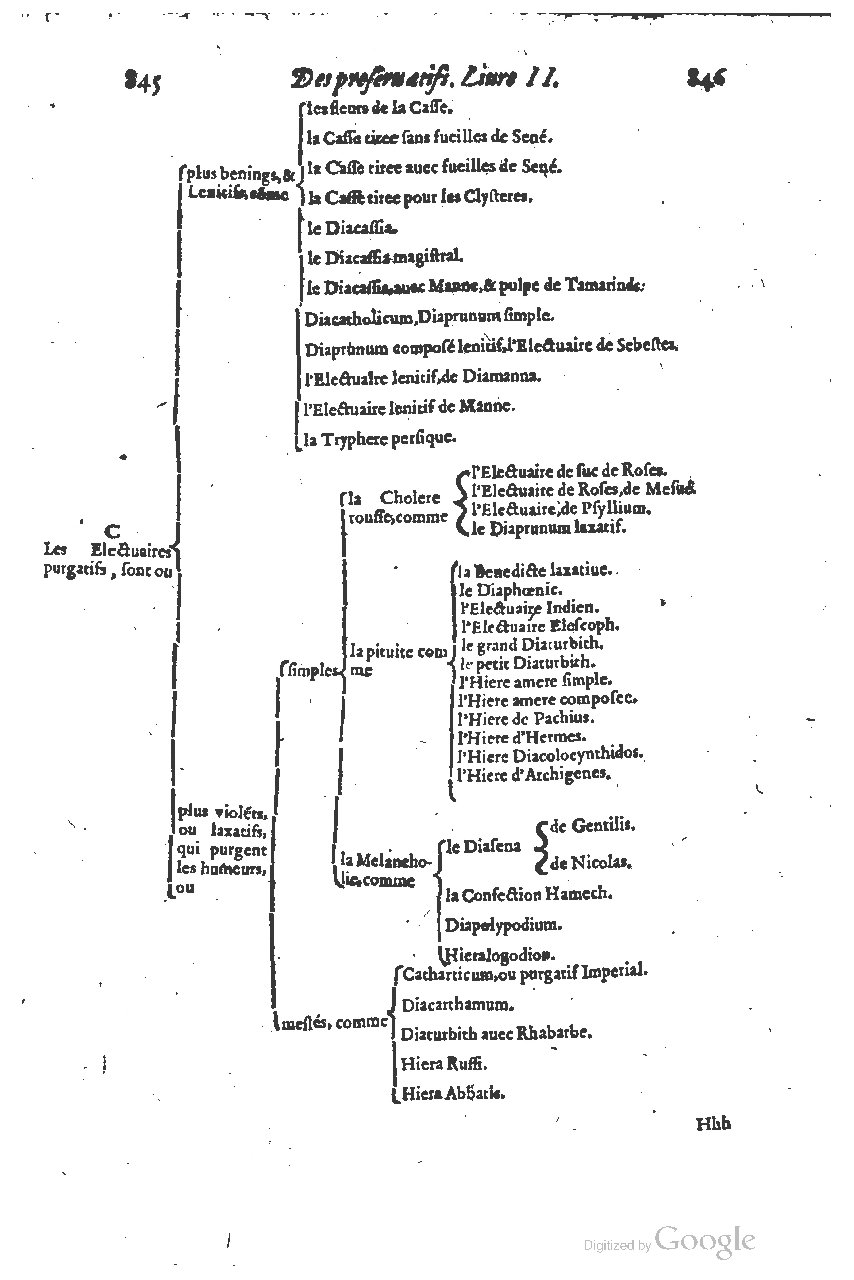 845 Des preſeruatifs. Liure II. 846
C
Les Electuaires
purgatifs, ſont ou
plus benings, &
Lenitifs, cõme
les fleurs de la Caſſe.
la Caſſe tiree ſans fueilles de Sené.
la Caſſe tiree auec fueilles de Sené.
la Caſſe tiree pour les Clyſteres.
le Diacaſſia.
le Diacaſſia magiſtral.
le Diacaſſia, auec Manne, & pulpe de Tamarinds.
Diacatholicum, Diaprunum ſimple.
Diaprunum compoſé lenitif, l'Electuaire de Sebeſtes.
l'Electuaire lenitif, de Diamanna.
l'Electuaire lenitif de Manne.
la Tryphere perſique.
plus violéts,
ou laxatifs,
qui purgent
les humeurs,
ou
ſimples
la Cholere
rouſſe, comme
l'Electuaire de ſuc de Roſes.
l'Electuaire de Roſes, de Meſué
l'Electuaire, de Pſyllium.
le Diaprunum laxatif.
la pituite com
me
la Benedicte laxatiue.
le Diaphœnic.
l'Electuaire Indien.
l'Electuaire Eleſcoph.
le grand Diaturbith.
le petit Diaturbith.
l'Hiere amere ſimple.
l'Hiere amere compoſee.
l'Hiere de Pachius.
l'Hiere d'Hermes.
l'Hiere Diacolocynthidos.
l'Hiere d'Archigenes.
la Melancho-
lie, comme
le Diaſena
de Gentilis.
de Nicolas.
la Confection Hamech.
Diapolypodium.
Hieralogodion.
meſlés, comme
Catharticum, ou purgatif Imperial.
Diacarthamum.
Diaturbith auec Rhabarbe.
Hiera Ruffi.
Hiera Abbatis.
Hhh
Digitized by Google